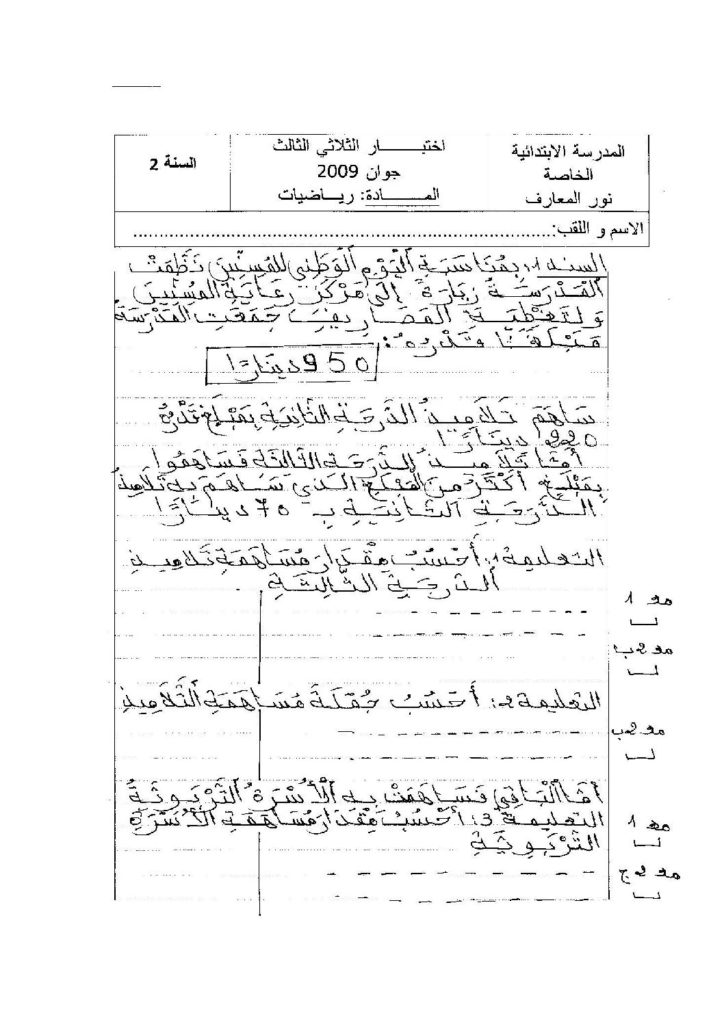 المدرسة الابتدائية
الخاصة
نور المعارف
اختبـــــــار الثلاثي الثالث
جوان 2009
المـــــــادة: ريـــاضيات
السنة 2
الاسم و اللقب:
السند 1: بِمُنَاسَبَةِ الْيَوْمِ الْوَطَنِي لِلْمُسِنِّينَ نَظَّمَتْ
الْمَدْرَسَةُ زِيَارَةً إِلَى مَرْكَزِ رِعَايَةِ الْمُسِنِّينَ
وَلِتَغْطِيَةِ الْمَصَارِيفِ جَمَعَتِ الْمَدْرَسَةُ
مَبْلَغًا قَدْرُهُ:
950 دِينَارًا
سَاهَمَ تَلَامِيذُ الدَّرَجَةِ الثَّانِيَةِ بِمَبْلَغٍ قَدْرُهُ
220 دِينَارًا
أَمَّا تَلَامِيذُ الدَّرَجَةِ الثَّالِثَةِ فَسَاهَمُوا
بِمَبْلَغٍ أَكْثَرَ مِنَ الْمَبْلَغِ الَّذِي سَاهَمَ بِهِ تَلَامِيذُ
الدَّرَجَةِ الثَّانِيَةِ بِـ 70 دِينَارًا
التعليمة 1: أَحْسُبُ مِقْدَارَ مُسَاهَمَةِ تَلَامِيذِ
الدَّرَجَةِ الثَّالِثَةِ
مع 1
مع 2ب
التعليمة 2: أَحْسُبُ جُمْلَةَ مُسَاهَمَةِ التَّلَامِيذِ
مع 2ب
أَمَّا الْبَاقِي فَسَاهَمَتْ بِهِ الْأُسْرَةُ التَّرْبَوِيَّةُ
التعليمة 3: أَحْسُبُ مِقْدَارَ مُسَاهَمَةِ الْأُسْرَةِ
التَّرْبَوِيَّةِ
مع 1
مع 2ج